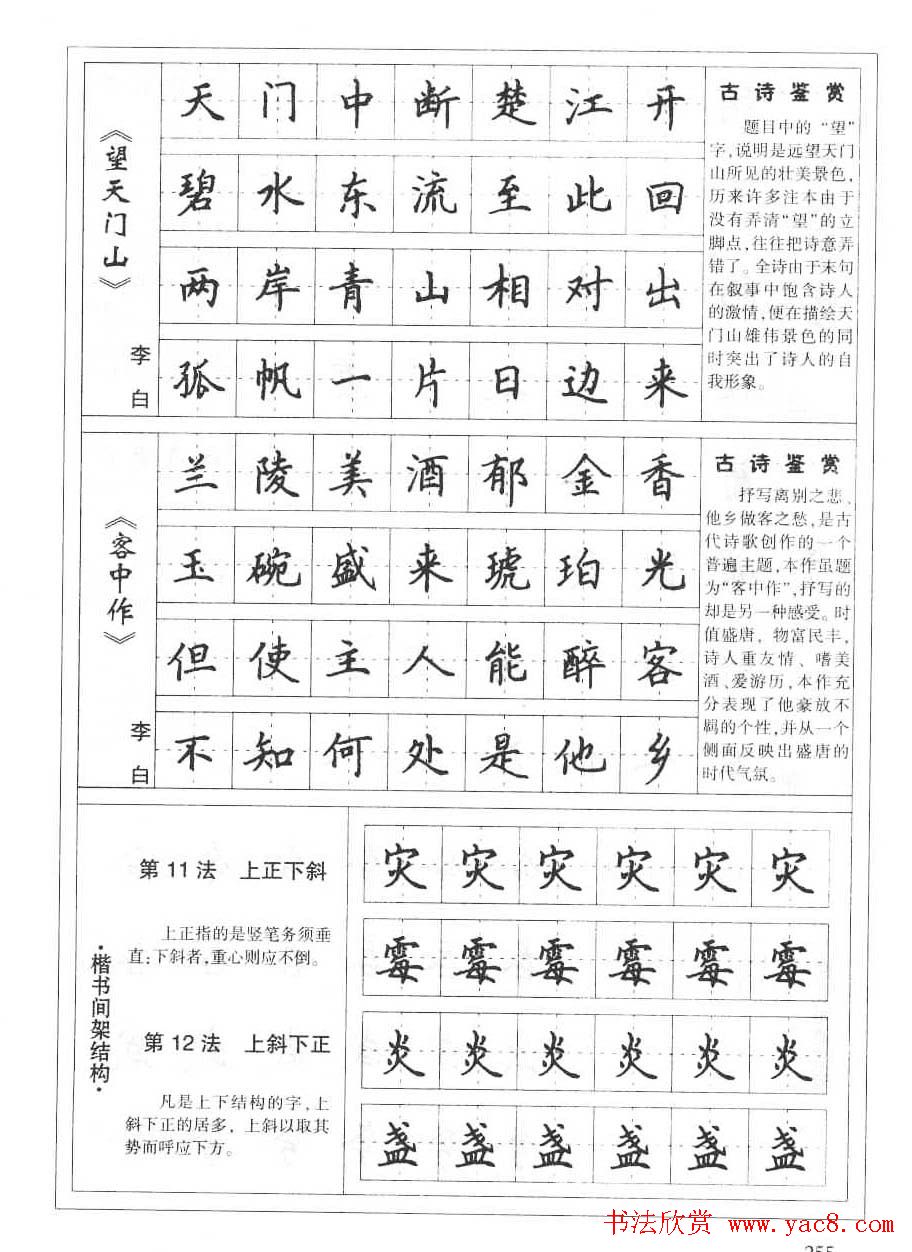 《望天门山》
李白
天门中断楚江开
碧水东流至此回
两岸青山相对出
孤帆一片日边来
古诗鉴赏
题目中的“望”
字,说明是远望天门
山所见的壮美景色,
历来许多注本由于
没有弄清“望”的立
脚点,往往把诗意弄
错了。全诗由于末句
在叙事中饱含诗人
的激情,便在描绘天
门山雄伟景色的同
时突出了诗人的自
我形象。
《客中作》
李白
兰陵美酒郁金香
玉碗盛来琥珀光
但使主人能醉客
不知何处是他乡
古诗鉴赏
抒写离别之悲、
他乡做客之愁,是古
代诗歌创作的一个
普遍主题,本作虽题
为“客中作”,抒写的
却是另一种感受。时
值盛唐,物富民丰,
诗人重友情、嗜美
酒、爱游历,本作充
分表现了他豪放不
羁的个性,并从一个
侧面反映出盛唐的
时代气氛。
·楷书间架结构·
第11法 上正下斜
上正指的是竖笔务须垂
直;下斜者,重心则应不倒。
第12法 上斜下正
凡是上下结构的字,上
斜下正的居多,上斜以取其
势而呼应下方。
灾灾灾灾灾灾
霉霉霉霉霉霉
炎炎炎炎炎炎
盏盏盏盏盏盏
书法欣赏 www.yac8.com
255